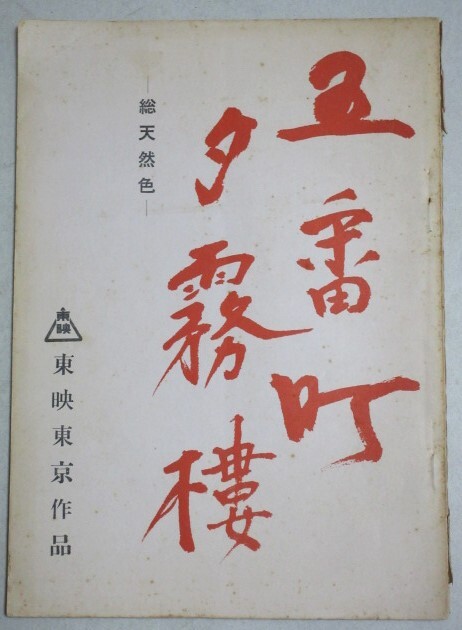 五番町
夕霧樓
―総天然色―
東映
東映東京作品